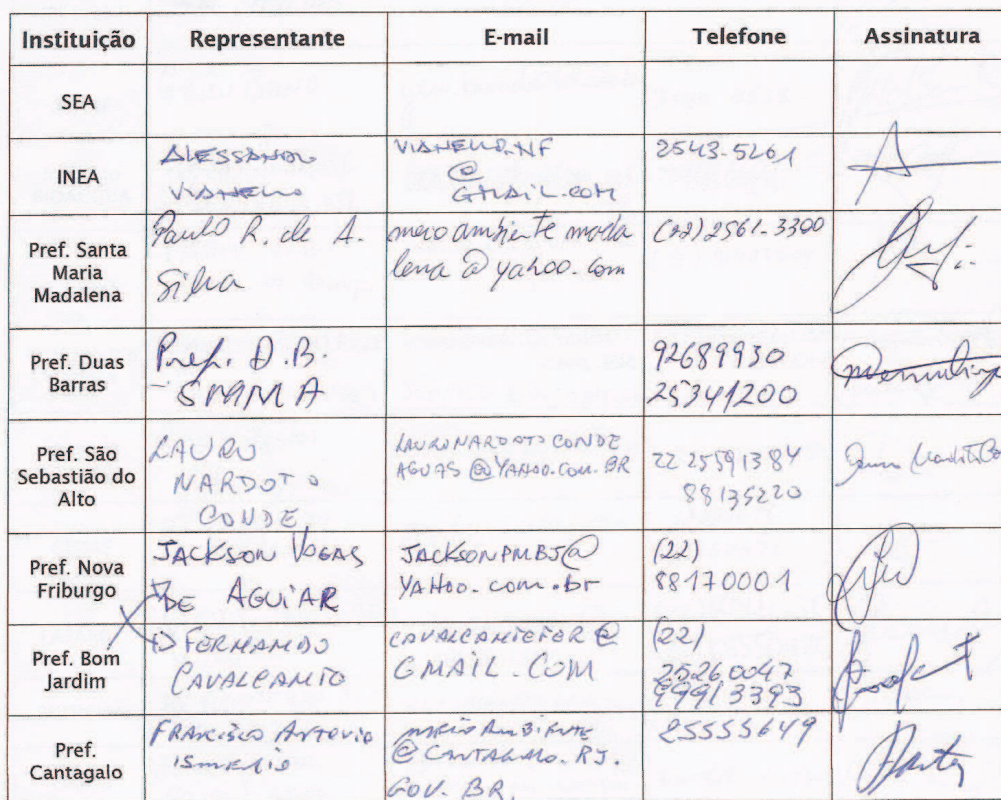 Instituição Representante E-mail Telefone Assinatura
SEA
INEA
ALESSANDRO
VIANELLO
VIANELLO.NF
@
GMAIL.COM
2543-5261
Pref. Santa
Maria
Madalena
Paulo R. de A.
Silva
meio ambiente mada
lena @ yahoo.com
(22) 2561-3300
Pref. Duas
Barras
Pref. D.B.
SMMA
92689930
25341200
Pref. São
Sebastião do
Alto
LAURO
NARDOTO
CONDE
LAURONARDOTO CONDE
AGUAS @YAHOO.COM.BR
22 25591384
88135220
Pref. Nova
Friburgo
JACKSON VOGAS
DE AGUIAR
JACKSONPMBJ@
YAHOO.com.br
(22)
88170001
Pref. Bom
Jardim
FERNANDO
CAVALCANTE
CAVALCANTEFER@
GMAIL.COM
(22)
25260047
99913393
Pref.
Cantagalo
FRANCISCO ANTONIO
ismério
MEIO AMBIENTE
@CANTAGALO.RJ.
GOV.BR.
25555649